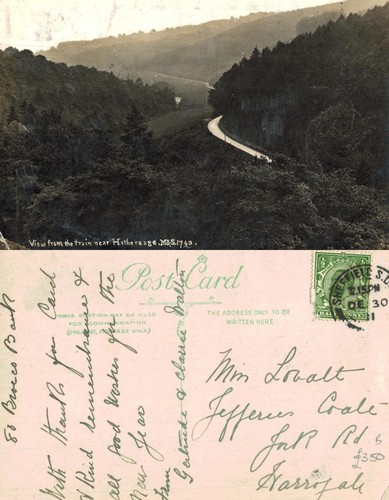 View from the train near Hathersage. M&S. 1740.
Post Card
THIS PORTION MAY BE USED
FOR COMMUNICATION
(INLAND POSTAGE ONLY)
THE ADDRESS ONLY TO BE
WRITTEN HERE
SHEFFIELD
2.15PM
DE 30
11
80
With thanks for Card
& Kind rememberance &
all good Wishes for the
New Year
From
Gertrude &
Miss
Jefferies
Rd
Harrogate
£3.50